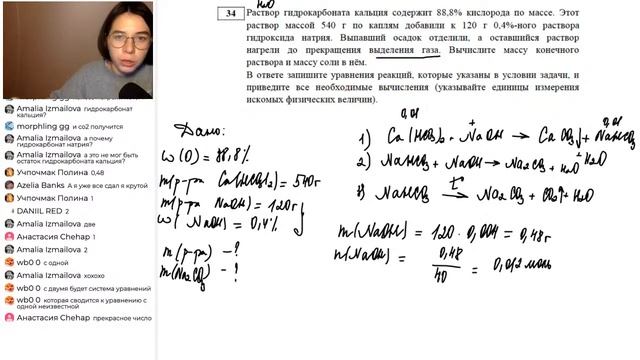 H₂O
34 Раствор гидрокарбоната кальция содержит 88,8% кислорода по массе. Этот
раствор массой 540 г по каплям добавили к 120 г 0,4%-ного раствора
гидроксида натрия. Выпавший осадок отделили, а оставшийся раствор
нагрели до прекращения выделения газа. Вычислите массу конечного
раствора и массу соли в нём.
В ответе запишите уравнения реакций, которые указаны в условии задачи, и
приведите все необходимые вычисления (указывайте единицы измерения
искомых физических величин).
Amalia Izmailova гидрокарбонат
кальция?
morphling gg и co2 получится
Amalia Izmailova а почему
гидрокарбонат натрия?
Amalia Izmailova а это не мог быть
остаток гидрокарбоната кальция?
Учпочмак Полина 0,48
Azelia Banks А я уже все сдал я крутой
Учпочмак Полина 1
DANIIL RED 2
Amalia Izmailova две
Анастасия Chehap 1
Amalia Izmailova 2
wb0 0 с одной
Amalia Izmailova хохохо
wb0 0 с двумя будет система уравнений
wb0 0 которая сводится к уравнению с
одной неизвестной
Анастасия Chehap прекрасное число
Дано:
w(O) = 88,8%
m(р-ра Ca(HCO₃)₂) = 540г
m(р-ра NaOH) = 120г
w(NaOH) = 0,4%
m(р-ра) - ?
m(Na₂CO₃) - ?
0,01 0,01
1) Ca(HCO₃)₂ + NaOH → CaCO₃↓ + NaHCO₃
+ H₂O
2) NaHCO₃ + NaOH → Na₂CO₃ + H₂O
3) NaHCO₃ t° → Na₂CO₃ + CO₂↑ + H₂O
m(NaOH) = 120 · 0,004 = 0,48г
n(NaOH) = 0,48 / 40 = 0,012 моль